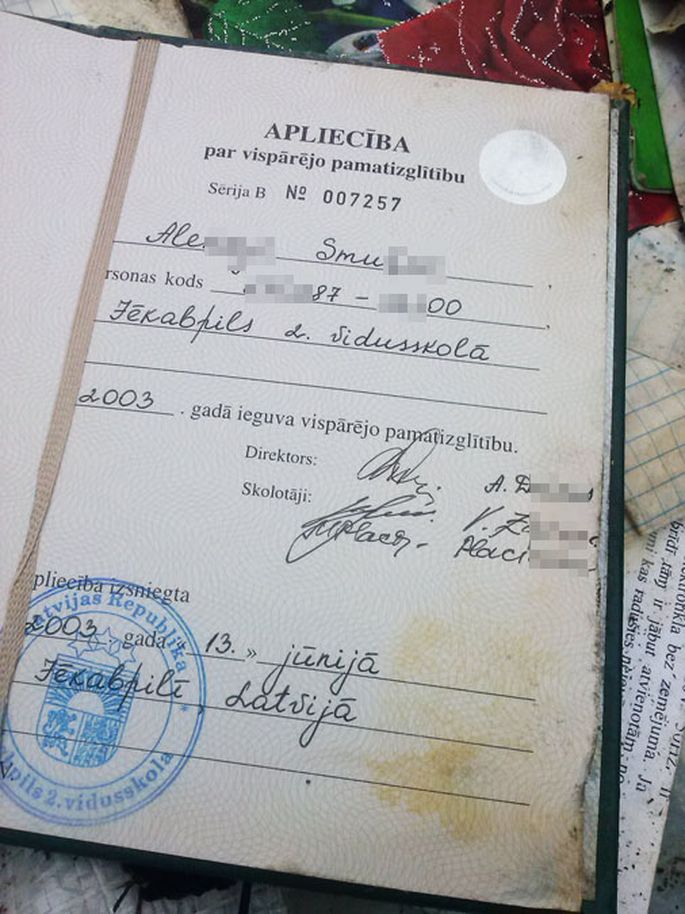 APLIECĪBA
par vispārējo pamatizglītību
Sērija B № 007257
Ale Smu ,
rsonas kods 87 - 00 ,
Jēkabpils 2. vidusskolā
2003 . gadā ieguva vispārējo pamatizglītību.
Direktors: A. D
Skolotāji: V. Z
Placi
pliecība izsniegta
2003 gada « 13. » jūnijā
Jēkabpilī, Latvijā
atvijas Republika
pils 2. vidusskola
bez zemējuma. Ja
bridi tām ir jābūt atvienotām no
mi kas radušies